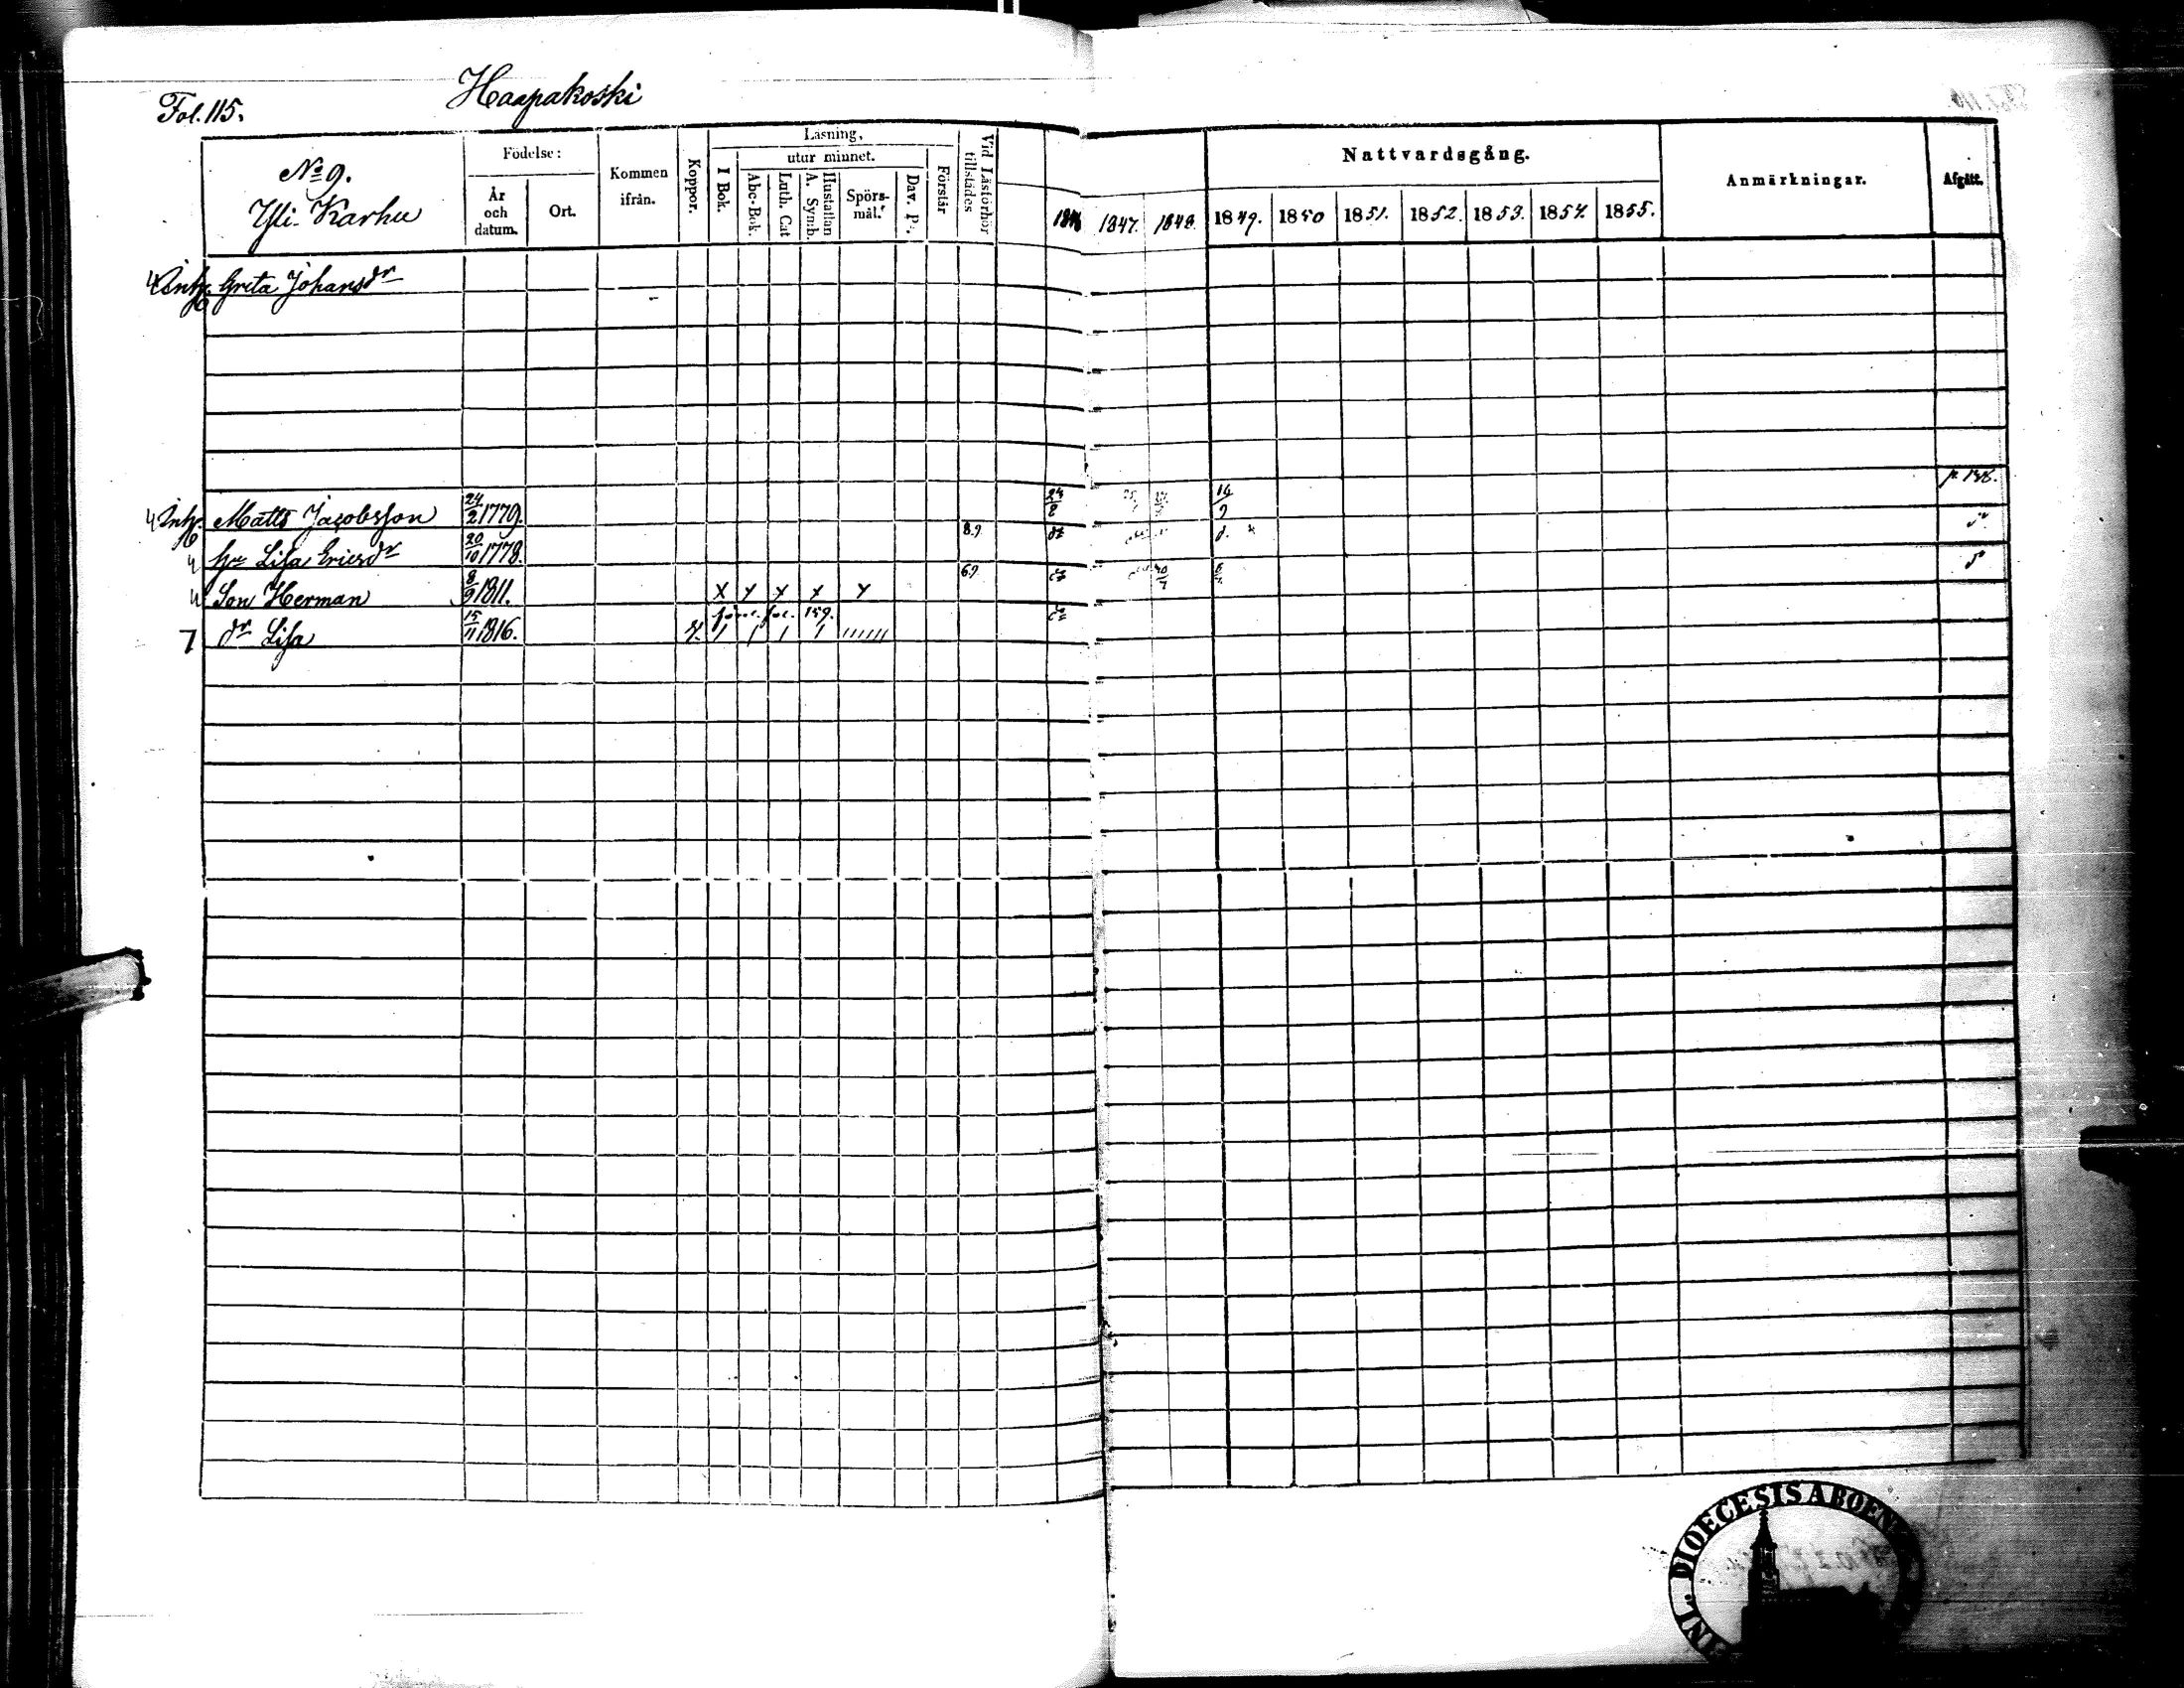 Fol. 115.
Haapakoski
No 9.
Yli-Karhu
Födelse:
År och datum.
Ort.
Kommen ifrån.
Koppor.
Läsning,
I Bok.
utur minnet.
Abc-Bok.
Luth. Cat
Hustaflan A. Symb.
Spörs-mål.
Dav. P.
Förstår
Vid Läsförhör tillstädes
1846 1847. 1848.
Nattvardsgång.
1849. 1850 1851. 1852. 1853. 1854. 1855.
Anmärkningar.
Afgått.
Greta Johansdr
4 Inh. Matts Jacobsson 24/2 1779.
4 hu Lisa Ericsdr 20/10 1778. 8.9
4 Son Herman 8/9 1811. x x x x x 6.9
7 dr Lisa 15/11 1816. fol. 159.
DIOECESIS ABOEN